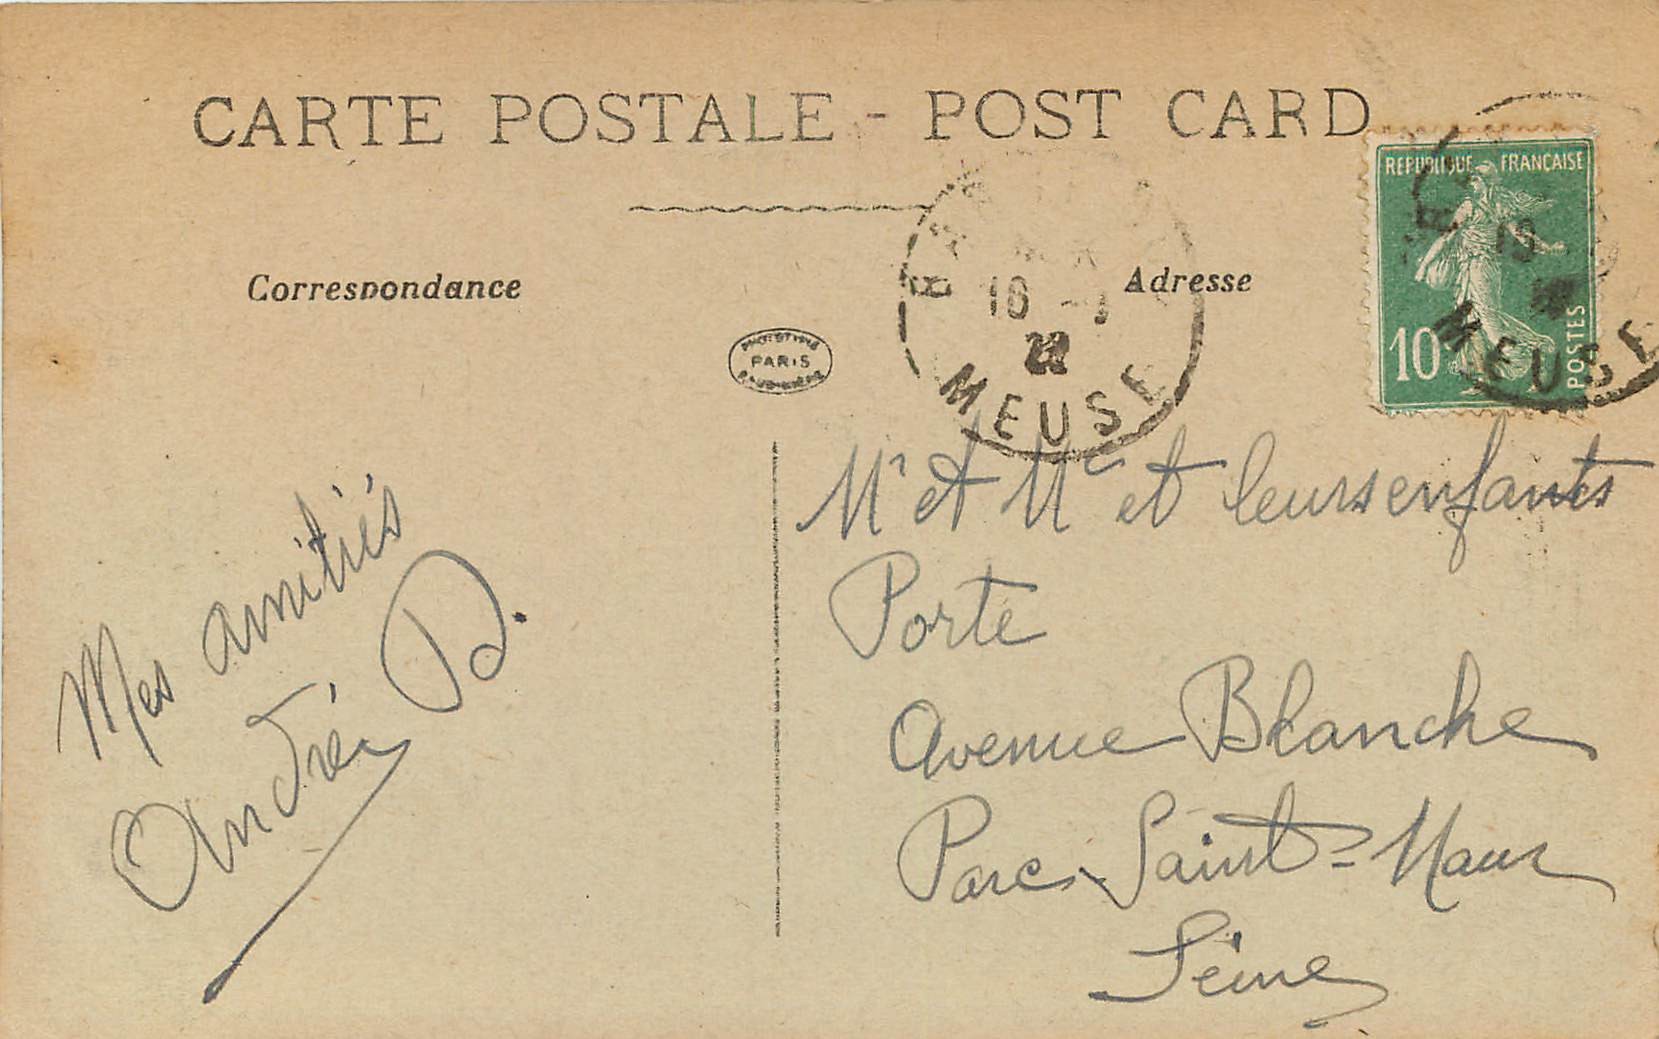 CARTE POSTALE - POST CARD
Correspondance
Adresse
REPUBLIQUE FRANÇAISE
10
POSTES
16
22
MEUSE
MEUSE
PARIS
Mes amitiés
André D.
Mr et Me et leurs enfants
Porte
Avenue Blanche
Parc Saint-Maur
Seine